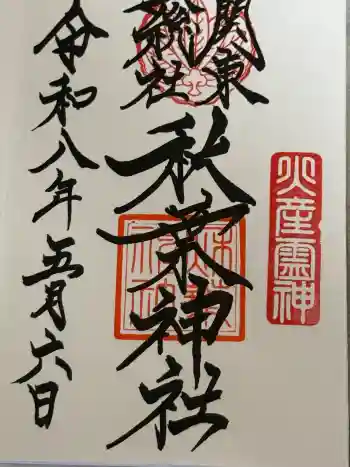 火産霊神
関東
総社
秋葉神社
令和八年五月六日